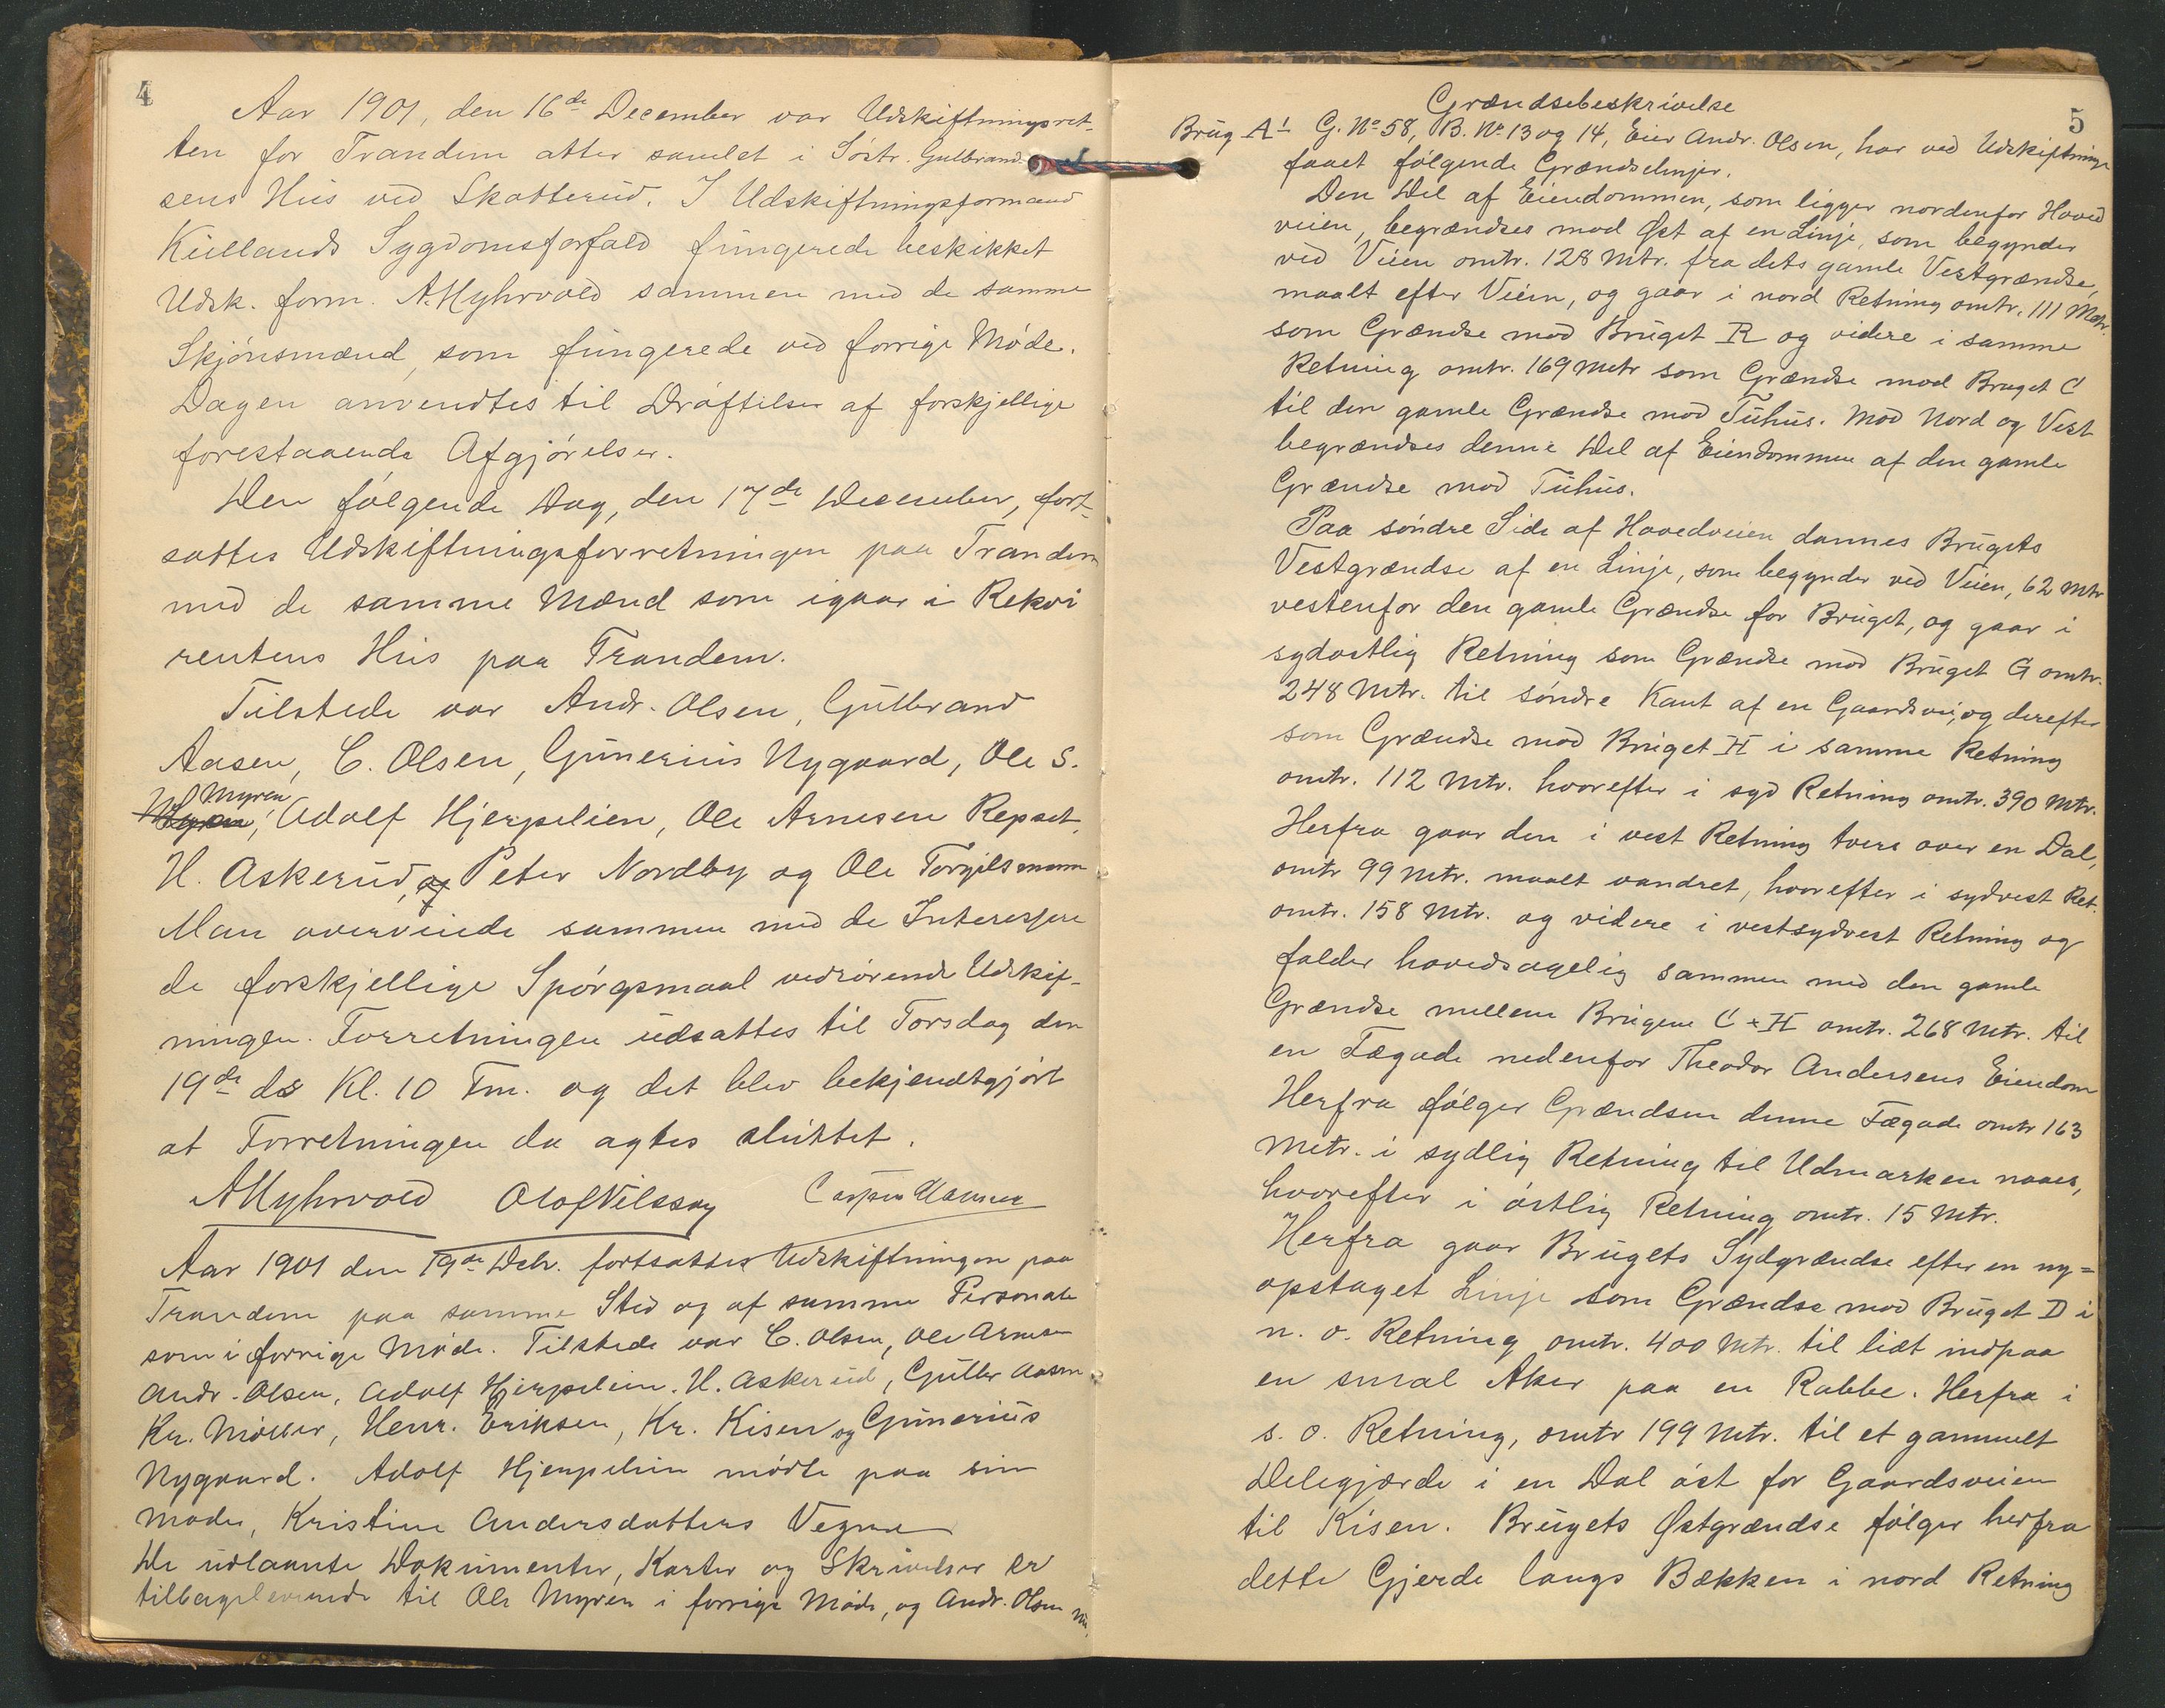 4
Aar 1901, den 16de December var Udskiftningsret-
ten for Trandem atter samlet i Søstr. Gulbrand-
sens Hus ved Skotterud. I Udskiftningsformand
Kiellands Sygdomsforfald fungerede beskikket
Udsk. form. A. Myhrvold sammen med de samme
Skjønsmænd, som fungerede ved forrige Møde.
Dagen anvendtes til Drøftelser af forskjellige
forestaaende Afgjørelser.
Den følgende Dag, den 17de December, fort-
sattes Udskiftningsforretningen paa Trandem
med de samme Mænd som igaar i Rekvi
rentens Hus paa Trandem.
Tilstede var Andr. Olsen, Gulbrand
Aasen, C. Olsen, Gunerius Nygaard, Ole S.
Myren, Adolf Hjerpelien, Ole Arnesen Repset,
H. Askerud, og Peter Nordby og Ole Torgilsmoen
Man overveiede sammen med de Interessere
de forskjellige Spørgsmaal vedrørende Udskif-
ningen. Forretningen udsattes til Torsdag den
19de ds Kl. 10 Fm. og det blev bekjendtgjørt
at Forretningen da agtes sluttet.
AMyhrvold Olof Nilsson Casper
Aar 1901 den 19de Debr. fortsattes Udskiftningen paa
Trandem paa samme Sted og af samme Personale
som i forrige Møde. Tilstede var C. Olsen, Ole Arnesen
Andr. Olsen, Adolf Hjerpelien. H. Askerud, Gulbr Aasen
Kr. Møller, Henr. Eriksen, Kr. Kisen og Gunerius
Nygaard. Adolf Hjerpelien mødte paa sin
Moder, Kristine Andersdatters Vegne
De udlaante Dokumenter, Karter og Skrivelser er
tilbageleverede til Ole Myren i forrige Møde, og Andr. Olsen nu.
5
Grændsebeskrivelse
Brug A1 G. No 58, B. No 13 og 14, Eier Andr. Olsen, har ved Udskiftningen
faaet følgende Grændselinjer.
Den Del af Eiendommen, som ligger nordenfor Hoved
veien, begrændses mod Øst af en Linje, som begynder
ved Veien omtr. 128 Mtr. fra dets gamle Vestgrændse,
maalt efter Veien, og gaar i nord Retning omtr. 111 Metr.
som Grændse mod Bruget R og videre i samme
Retning omtr. 169 Metr som Grændse mod Bruget C
til den gamle Grændse mod Tuhus. Mod Nord og Vest
begrændses denne Del af Eiendommen af den gamle
Grændse mod Tuhus.
Paa søndre Side af Hovedveien dannes Brugets
Vestgrændse af en Linje, som begynder ved Veien, 62 Mtr
vestenfor den gamle Grændse for Bruget, og gaar i
sydostlig Retning som Grændse mod Bruget G omtr.
248 Mtr. til søndre Kant af en Gaardsvei, og derefter
som Grændse mod Bruget H i samme Retning
omtr. 112 Mtr. hvorefter i syd Retning omtr. 390 Mtr.
Herfra gaar den i vest Retning tvers over en Dal,
omtr 99 Mtr. maalt vandret, hvorefter i sydvest Ret.
omtr. 158 Mtr. og videre i vestsydvest Retning og
falder hovedsagelig sammen med den gamle
Grændse mellem Brugene C & H omtr. 268 Mtr. til
en Fægade nedenfor Theodor Andersens Eiendom
Herfra følger Grændsen denne Fægade omtr 163
Metr. i sydlig Retning til Udmarken naaes,
hvorefter i østlig Retning omtr. 15 Mtr.
Herfra gaar Brugets Sydgrændse efter en ny=
opstaget Linje som Grændse mod Bruget D i
n. o. Retning omtr. 400 Mtr. til lidt indpaa
en smal Aker paa en Rabbe. Herfra i
s. o. Retning, omtr 199 Mtr. til et gammelt
Delegjærde i en Dal øst for Gaardsveien
til Kisen. Brugets Østgrændse følger herfra
dette Gjerde langs Bækken i nord Retning